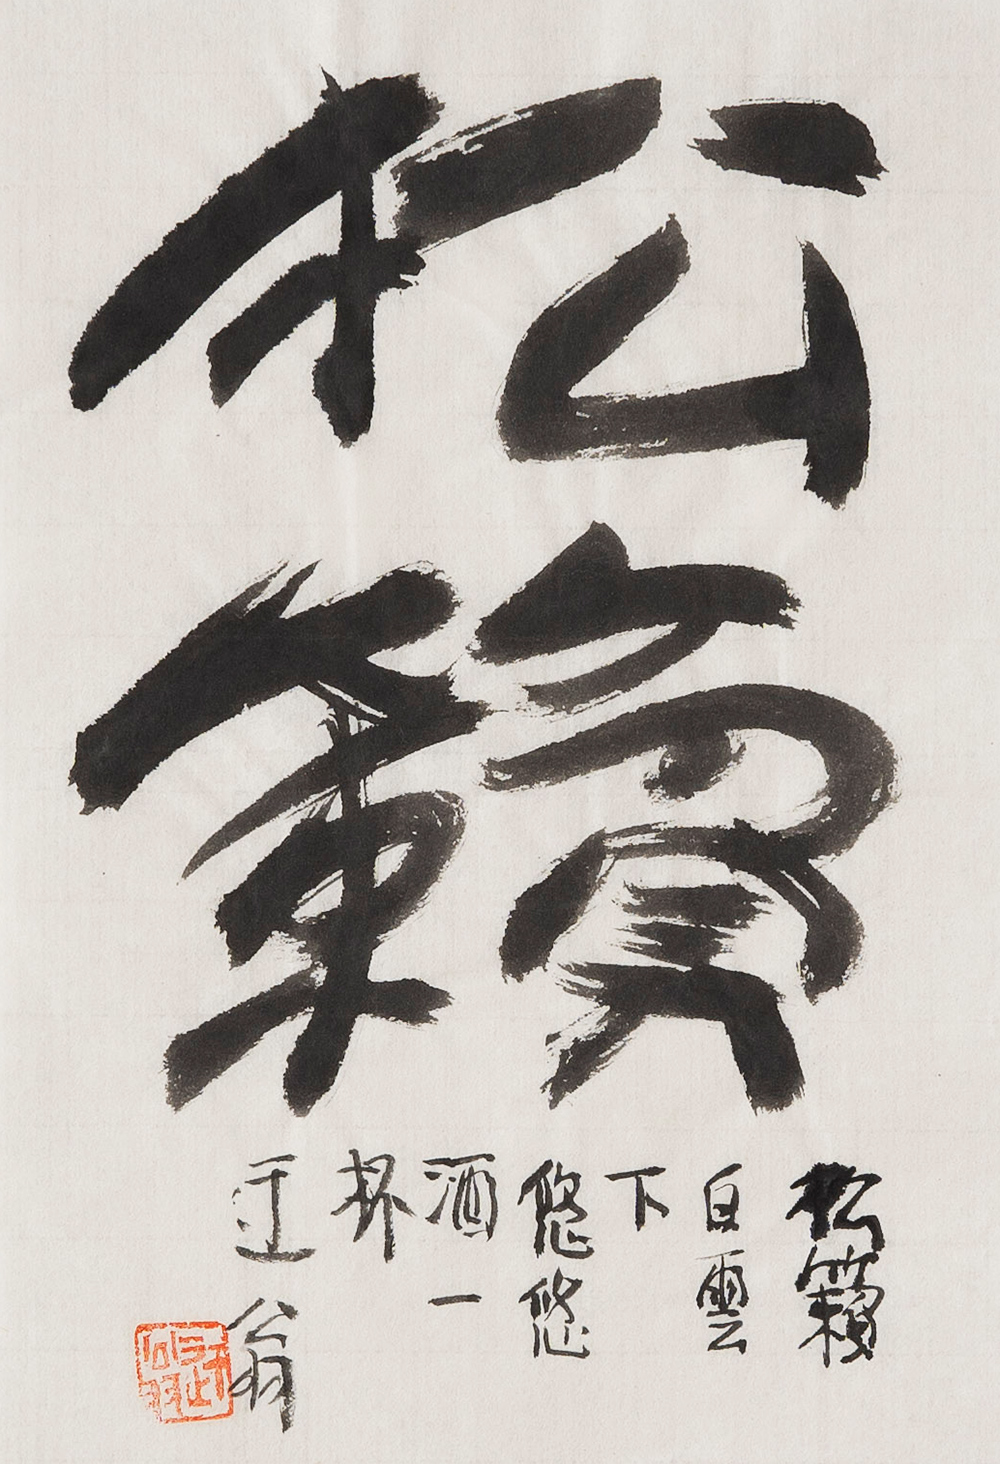 松籟
松籟
白雲
下
悠悠
酒一
杯
迂翁